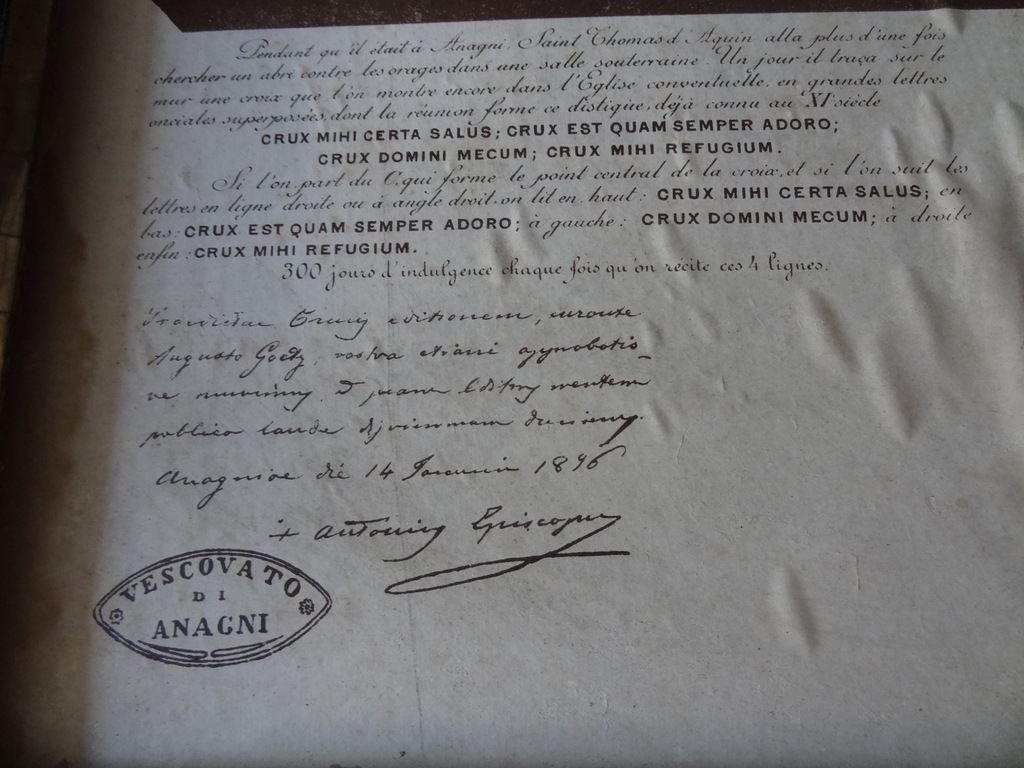 Pendant qu'il était à Anagni, Saint Thomas d'Aquin alla plus d'une fois
chercher un abri contre les orages dans une salle souterraine. Un jour il traça sur le
mur une croix que l'on montre encore dans l'Eglise conventuelle, en grandes lettres
onciales superposées, dont la réunion forme ce distique, déjà connu au XIe siècle
CRUX MIHI CERTA SALÙS; CRUX EST QUAM SEMPER ADORO;
CRUX DOMINI MECUM; CRUX MIHI REFUGIUM.
Si l'on part du C, qui forme le point central de la croix, et si l'on suit les
lettres en ligne droite ou à angle droit, on lit en haut: CRUX MIHI CERTA SALUS; en
bas: CRUX EST QUAM SEMPER ADORO; à gauche: CRUX DOMINI MECUM; à droite
enfin: CRUX MIHI REFUGIUM.
300 jours d'indulgence chaque fois qu'on récite ces 4 lignes.
Crucis editionem, curante
Augusto Goetz, nostra etiam approbatio-
ne munimus
publica laude
Anagniae die 14 1896
+ Antonius Episcopus
VESCOVATO
DI
ANAGNI